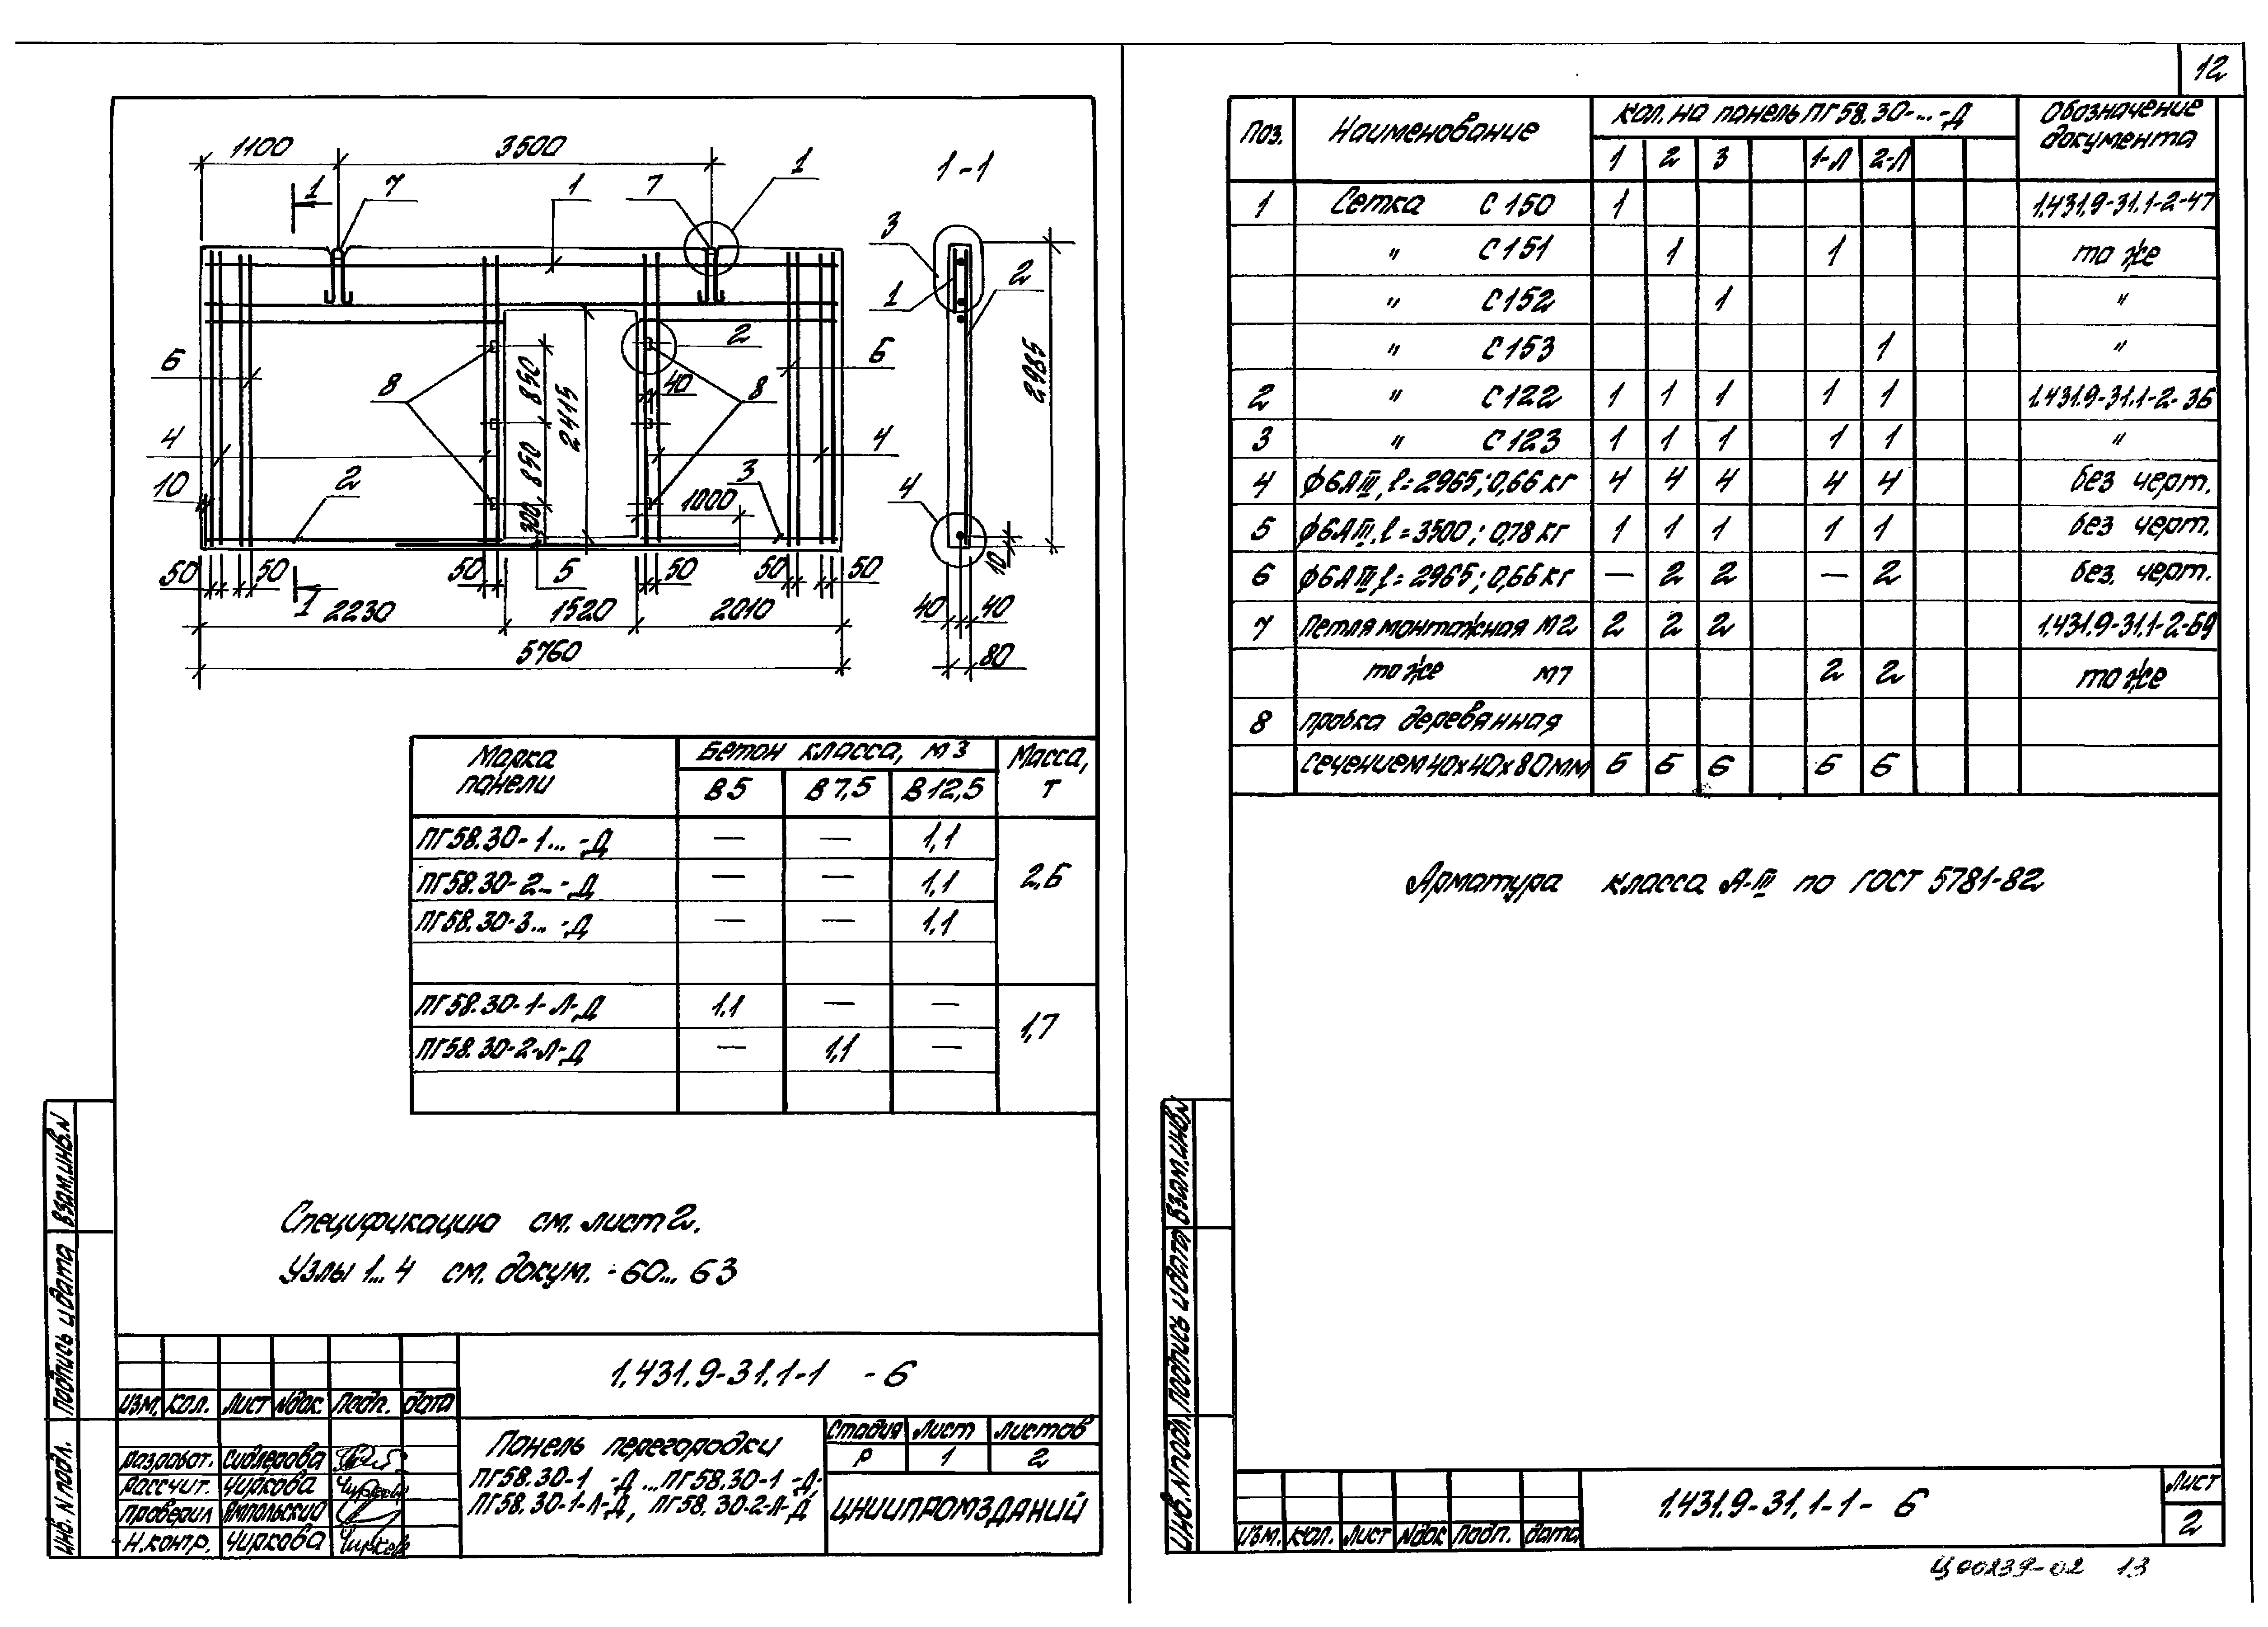 12
1100 3500
1 7 1 7 1 1-1
3 1 2
6 8 850 2415 40 2 8 6 2985
4 850 4
10 2 300 1000 3 4
50 50 1 50 5 50 50 50 10
2230 1520 2010 40 40
5760 80
Марка панели Бетон класса, м3 Масса, т
В5 В7,5 В12,5
ПГ58.30-1... -Д — — 1,1
ПГ58.30-2... -Д — — 1,1 2,6
ПГ58.30-3... -Д — — 1,1
ПГ58.30-1-Л-Д 1,1 — — 1,7
ПГ58.30-2-Л-Д — 1,1 —
Спецификацию см. лист 2.
Узлы 1...4 см. докум. -60...63
Взам.инв.N
Подпись и дата
Инв.N подл.
1.431.9-31.1-1 -6
Изм. Кол. Лист Nдок. Подп. Дата
Панель перегородки
ПГ58.30-1 -Д ...ПГ58.30-1 -Д;
ПГ58.30-1-Л-Д, ПГ58.30-2-Л-Д
Стадия Лист Листов
Р 1 2
ЦНИИПРОМЗДАНИЙ
Разработ. Сидлерова
Рассчит. Чиркова
Проверил Ямпольский
Н.контр. Чиркова
Поз. Наименование Кол. на панель ПГ58.30-...-Д Обозначение документа
1 2 3 1-Л 2-Л
1 Сетка С150 1 1.431.9-31.1-2-47
" С151 1 1 то же
" С152 1 "
" С153 1 "
2 " С122 1 1 1 1 1 1.431.9-31.1-2-36
3 " С123 1 1 1 1 1 "
4 ϕ6АIII, ℓ=2965; 0,66 кг 4 4 4 4 4 без черт.
5 ϕ6АIII, ℓ=3500; 0,78 кг 1 1 1 1 1 без черт.
6 ϕ6АIII, ℓ=2965; 0,66 кг — 2 2 — 2 без. черт.
7 Петля монтажная М2 2 2 2 1.431.9-31.1-2-69
то же М7 2 2 то же
8 Пробка деревянная
сечением 40х40х80мм 6 6 6 6 6
Арматура класса А-III по ГОСТ 5781-82
Взам.инв.N
Подпись и дата
Инв.N подл.
Изм. Кол. Лист Nдок Подп. Дата
1.431.9-31.1-1- 6
Лист
2
Ц00239-02 13